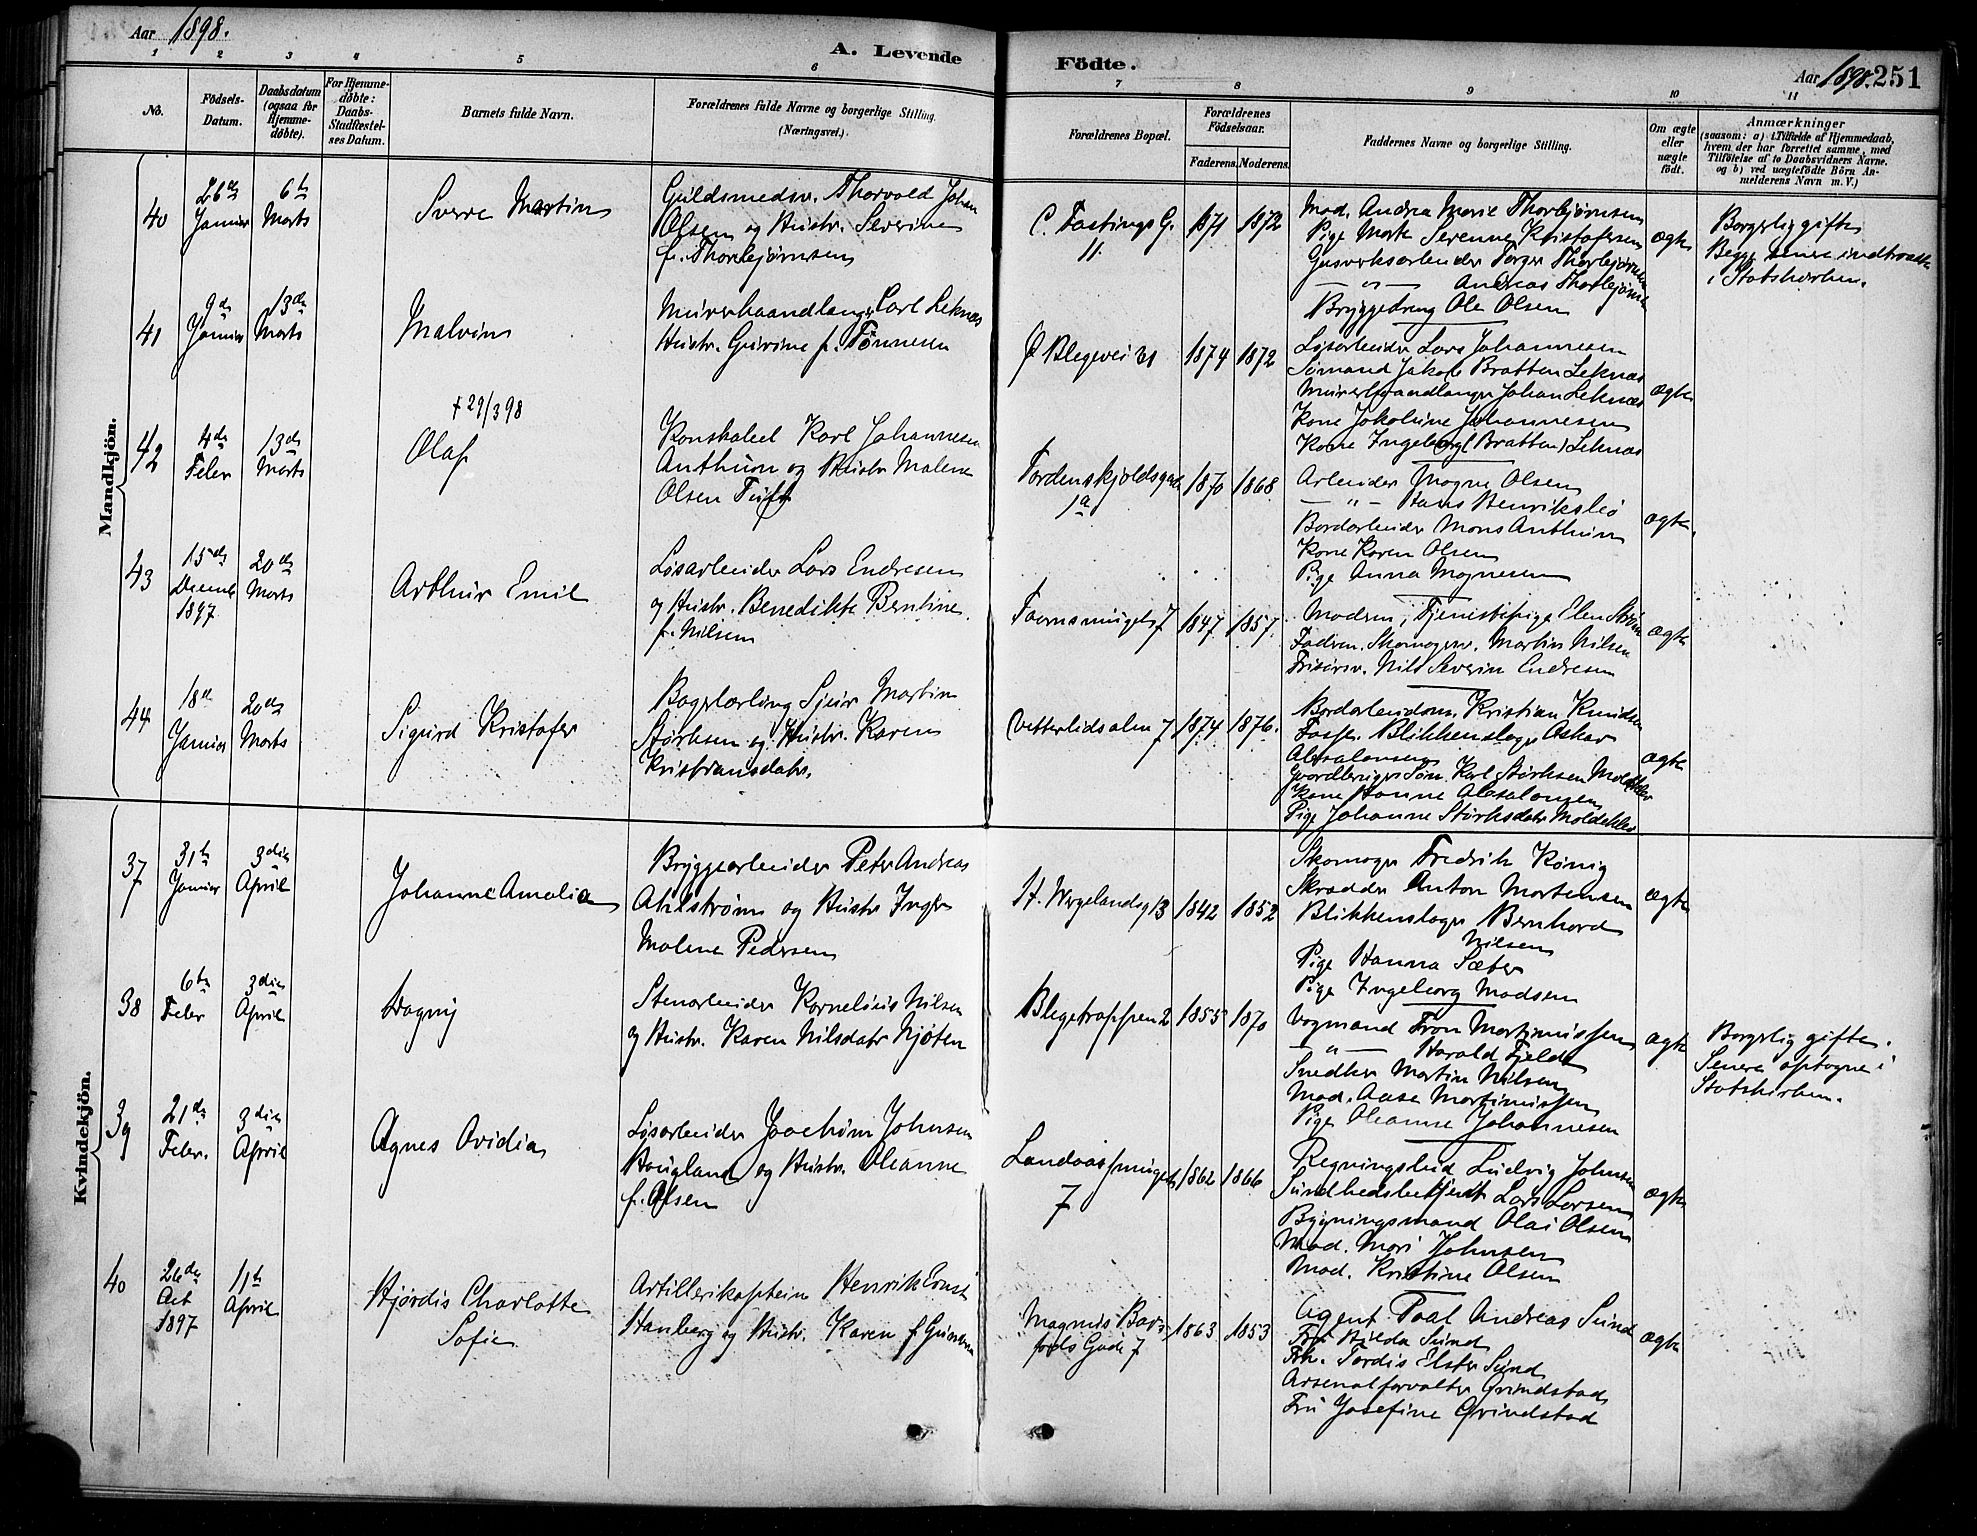 Aar 1898.
A. Levende Fødte.
Aar 1898. 251
1 2 3 4 5 6 7 8 9 10 11
No.
Fødsels-
Datum.
Daabsdatum
(ogsaa for
Hjemme-
døbte).
For Hjemme-
døbte:
Daabs-
Stadfæstel-
ses Datum.
Barnets fulde Navn.
Forældrenes fulde Navne og borgerlige Stilling.
(Næringsvei.)
Forældrenes Bopæl.
Forældrenes
Fødselsaar.
Faderens. Moderens.
Faddernes Navne og borgerlige Stilling.
Om ægte
eller
uægte
født.
Anmærkninger
(saasom: a) i Tilfælde af Hjemmedaab,
hvem der har forrettet samme, med
Tilføielse af to Daabsvidners Navne.
og b) ved uægtefødte Børn An-
melderens Navn m. V.)
Mandkjön.
40
26de
Januar
6te
Marts
Sverre Martin
Guldsmedsv. Thorvald Johan
Olsen og Hustr. Severine
f. Thorbjørnsen
C. Fastings G.
11.
1871 1872
Mad. Andrea Marie Thorbjørnsen
Pige Marta Serenne Kristofersen
Gasverksarbeider Torger Thorbjørnsen
— " — Andreas Thorbjørnsen
Bryggedreng Ole Olsen
ægte
Borgerlig gifte
Begge senere indtraadte
i Statskirken.
41
9de
Januar
13de
Marts
Malvin
Murerhaandlanger Carl Leknæs
Hustr. Gurine f. Tønnesen
Ø Blegevei 21
1874 1872
Løsarbeider Lars Johannesen
Sømand Jakob Bratten Leknæs
Murerhaandlanger Johan Leknæs
Kone Jakobine Johannesen
Kone Ingeborg (Bratten) Leknæs
ægte
42
4de
Febr
13de
Marts
† 29/3 98
Olaf
Konstabel Karl Johannesen
Anthun og Hustr Malene
Olsen Tuft
Tordenskjoldsgade
1a
1870 1868
Arbeider Magne Olsen
— " — Hans Henriksbø
Bordarbeider Mons Anthun
Kone Karen Olsen
Pige Anna Magnesen
ægte
43
15de
Decemb
1897
20de
Marts
Arthur Emil
Løsarbeider Lars Endresen
og Hustr. Benedikte Bentine
f. Nilsen
7
1847 1857
Moderen, Tjenestepige Elen Strøm
Faderen. Skomagersv. Martin Nilsen
Frisørsv. Nils Severin Endresen
ægte
44
18de
Januar
20de
Marts
Sigurd Kristofer
Bagerlærling Sjur Martin
Størksen og Hustr. Karen
Kristiansdatr.
Vetterlidsalm 7
1874 1876.
Bordarbeidsm. Kristian Knudsen
Fosse. Blikkenslager Oskar
Absalonsen
Gaardbrugers Søn. Karl Størksen Moldeklev
Kone Hanne Absalonsen
Pige Johanne Størksdatr Moldeklev
ægte
Kvindekjön.
37
31te
Januar
3die
April
Johanne Amalia
Bryggearbeider Peter Andreas
Ahlstrøm og Hustr Inger
Malene Pedersen
H. Wergelandsg 13
1842 1852
Skomager Fredrik König
Skrædder Anton Mortensen
Blikkenslager Bernhard
Nilsen
Pige Hanna Sæter
Pige Ingeborg Madsen
ægte
38
6te
Febr
3die
April
Dagny
Stenarbeider Kornelius Nilsen
og Hustr. Karen Nilsdatr Njøten
Blegetrappen 2
1855 1870
Vogmand Tron Martinussen
— " — Harald Fjelde
Snedker Martin Nilsen
Mad. Aase Martinussen
Pige Oleanne Johannesen
ægte
Borgerlig gifte.
Senere optagne i
Statskirken.
39
21de
Febr.
3die
April
Agnes Ovidia
Løsarbeider Joachim Johnsen
Haugland og Hustr. Oleanne
f. Olsen
Landaassmuget
7
1862 1866
Regningsbud Ludvig Johnsen
Sundhedsbetjent Lars Larsen
Bygningsmand Olai Olsen
Mad. Mari Johnsen
Mad. Kristine Olsen
ægte
40
26de
Oct
1897
11te
April
Hjørdis Charlotte
Sofie
Artillerikaptein Henrik Ernst
Hanberg og Hustr. Karen f
Magnus Bar-
fods Gade 7
1863 1853
Agent Paal Andreas Sund
Fru Hilda Sund
Frk. Tordis Elster Sund
Arsenalforvalter Grindstad
Fru Josefine Grindstad
ægte